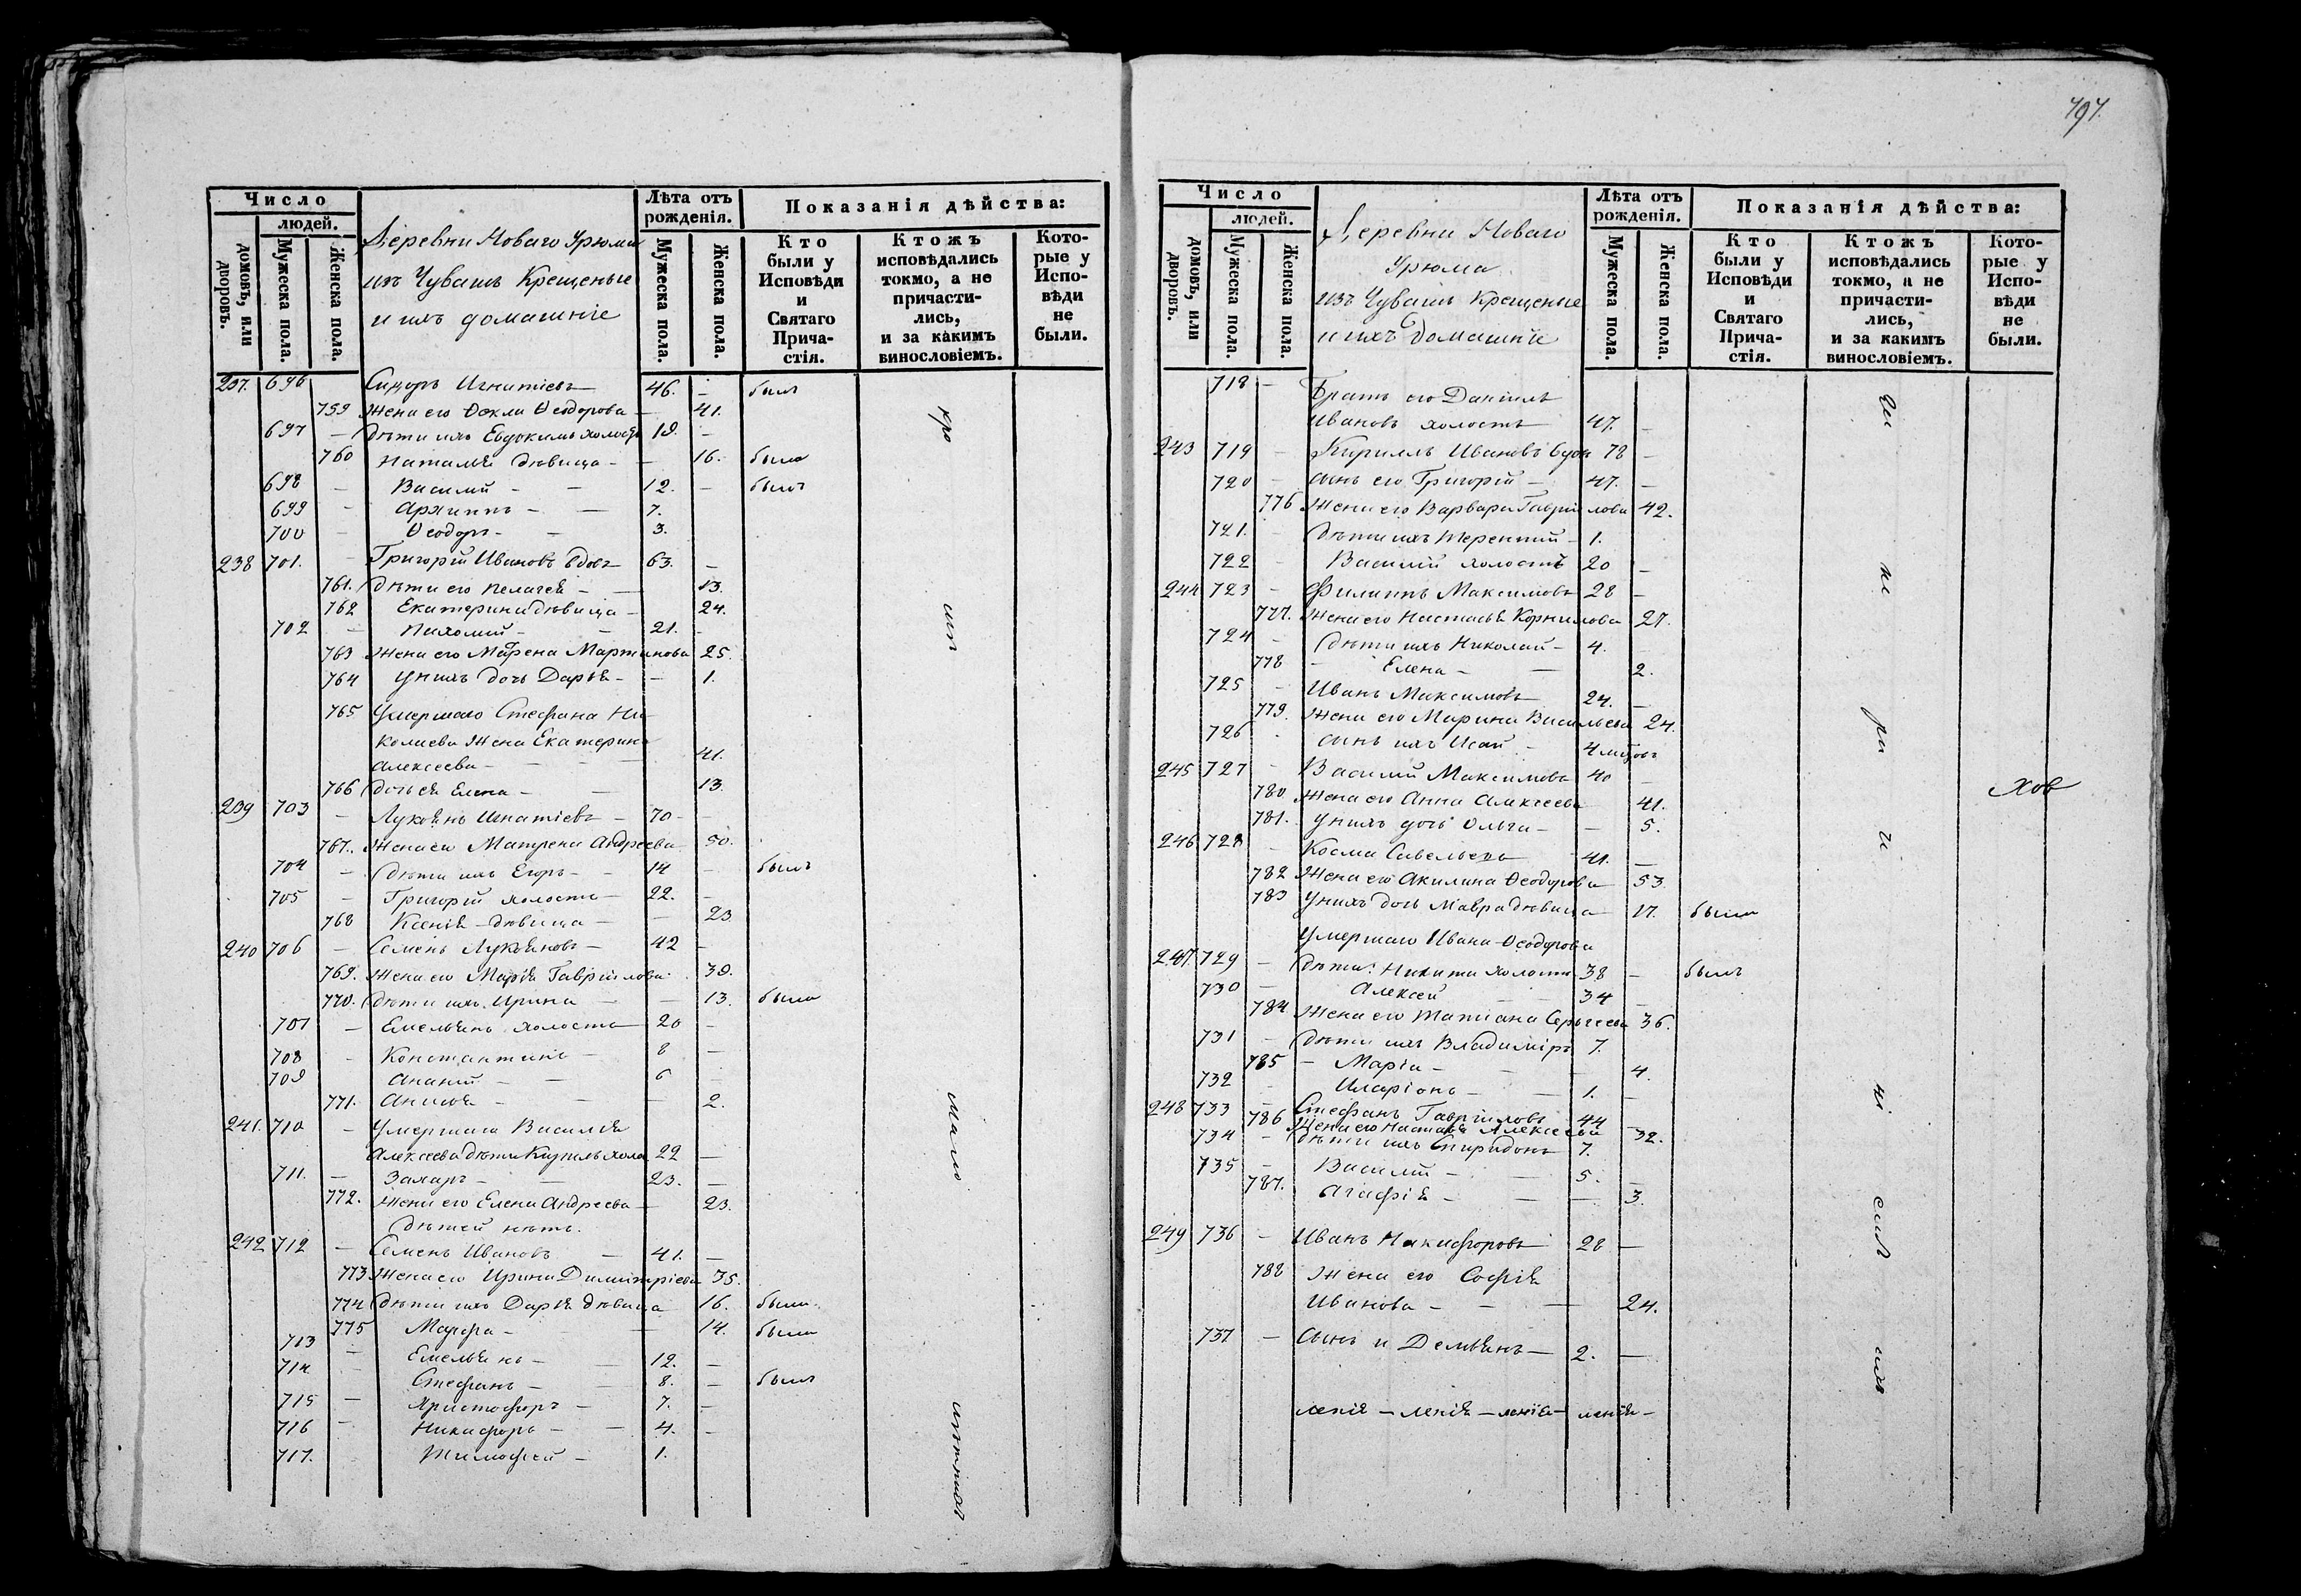 797.
Число
людей.
домовъ, или дворовъ.
Мужеска пола.
Женска пола.
Деревни Новаго Урюма
изъ Чувашъ Крещеные
и ихъ домашніе
Лѣта отъ рожденія.
Мужеска пола.
Женска пола.
Показанія дѣйства:
Кто были у Исповѣди и Святаго Прича-стія.
Ктожъ исповѣдались токмо, а не причасти-лись, и за какимъ винословіемъ.
Кото-рые у Испо-вѣди не были.
237. 696 Сидоръ Игнатіевъ 46. — былъ
759 Жена его Ѳекла Ѳеодорова — 41.
697 — Дѣти ихъ Евдокимъ холостъ 19. —
760 Наталья дѣвица — — 16. была
698 — Василій — — 12. — былъ
699 — Архиппъ — — 7.
700 — Ѳеодоръ — — 3.
238 701. — Григорій Ивановъ вдовъ 63. —
761. Дѣти его Пелагея — — 13.
762 Екатерина дѣвица — 24.
702 — Пахомій — — 21. —
763 Жена его Матрена Мартинова 25.
764 У нихъ дочь Дарья — — 1.
765 Умершаго Стефана Ни-
колаева Жена Екатерина
Алексеева — — — 41.
766 Дочь ея Елена — — 13.
239 703 — Лукоянъ Игнатіевъ — 70 —
767. Жена его Матрена Андреева 50.
704 — Дѣти ихъ Егоръ — — 14 — былъ
705 — Григорій холостъ — 22. —
768 Ксенія дѣвица — — 23
240 706 — Семенъ Лукояновъ — 42 —
769. Жена его Марія Гавріилова 39.
770. Дѣти ихъ Ирина — — 13. была
707 — Емельянъ холостъ 20 —
708 — Константинъ — 8 —
709 — Ананій — — 6 —
771. Анисья — — — 2.
241. 710 — Умершаго Василья
Алексеева дѣти Кирилъ холо. 22 —
711. — Захаръ — — 23. —
772. Жена его Елена Андреева — 23.
Дѣтей нѣтъ.
242 712 — Семенъ Ивановъ — 41. —
773 Жена его Ирина Димитріева 35.
774 Дѣти ихъ Дарья дѣвица 16. была
775 Марфа — — 14. была
713 — Емельянъ — — 12. —
714 Стефанъ — — 8. — былъ
715 — Христофоръ — 7. —
716 — Никифоръ — — 4. —
717. Тимофей — 1.
Число
людей.
домовъ, или дворовъ.
Мужеска пола.
Женска пола.
Деревни Новаго
Урюма
изъ Чувашъ Крещеные
и ихъ домашніе
Лѣта отъ рожденія.
Мужеска пола.
Женска пола.
Показанія дѣйства:
Кто были у Исповѣди и Святаго Прича-стія.
Ктожъ исповѣдались токмо, а не причасти-лись, и за какимъ винословіемъ.
Кото-рые у Испо-вѣди не были.
718 — Братъ его Даніилъ
Ивановъ холостъ 47. —
243 719 — Кириллъ Ивановъ вдов 78 —
720 — Сынъ его Григорій — 47. —
776 Жена его Варвара Гаврилова 42.
721. — Дѣти ихъ Терентій — 1.
722 — Василій холостъ 20 —
244 723 — Филиппъ Максимовъ 28 —
777. Жена его Настасья Корнилова 27.
724 — Дѣти ихъ Николай — 4.
778 — Елена — — 2.
725 — Иванъ Максимовъ 24. —
779. Жена его Марина Васильева 24.
726 Сынъ ихъ Исай — 4 мѣсцов
245 727 — Василій Максимовъ 40 —
780 Жена его Анна Алексеева 41.
781. У нихъ дочь Ольга — — 5.
246 728 — Косма Савельевъ 41. —
782 Жена его Акилина Ѳеодорова 53
783 У нихъ дочь Мавра дѣвица 17. была
Умершаго Ивана Ѳеодорова
247. 729 — Дѣти: Никита холостъ 38 — былъ
730 — Алексей — 34 —
784. Жена его Татіана Сергеева 36.
731 — Дѣти ихъ Владиміръ 7.
785 — Марія — — 4.
732 — Иларіонъ — — 1. —
248 733 — Стефанъ Гавриловъ 44 —
786 Жена его Настасья Алексеева 32.
734 — Дѣти ихъ Спиридонъ 7.
735 — Василій — — 5. —
787. Агафія — — — 3.
249 736 — Иванъ Никифоровъ 28 —
788 Жена его Софія
Иванова — — — 24.
737 — Сынъ и Демьянъ — 2. —